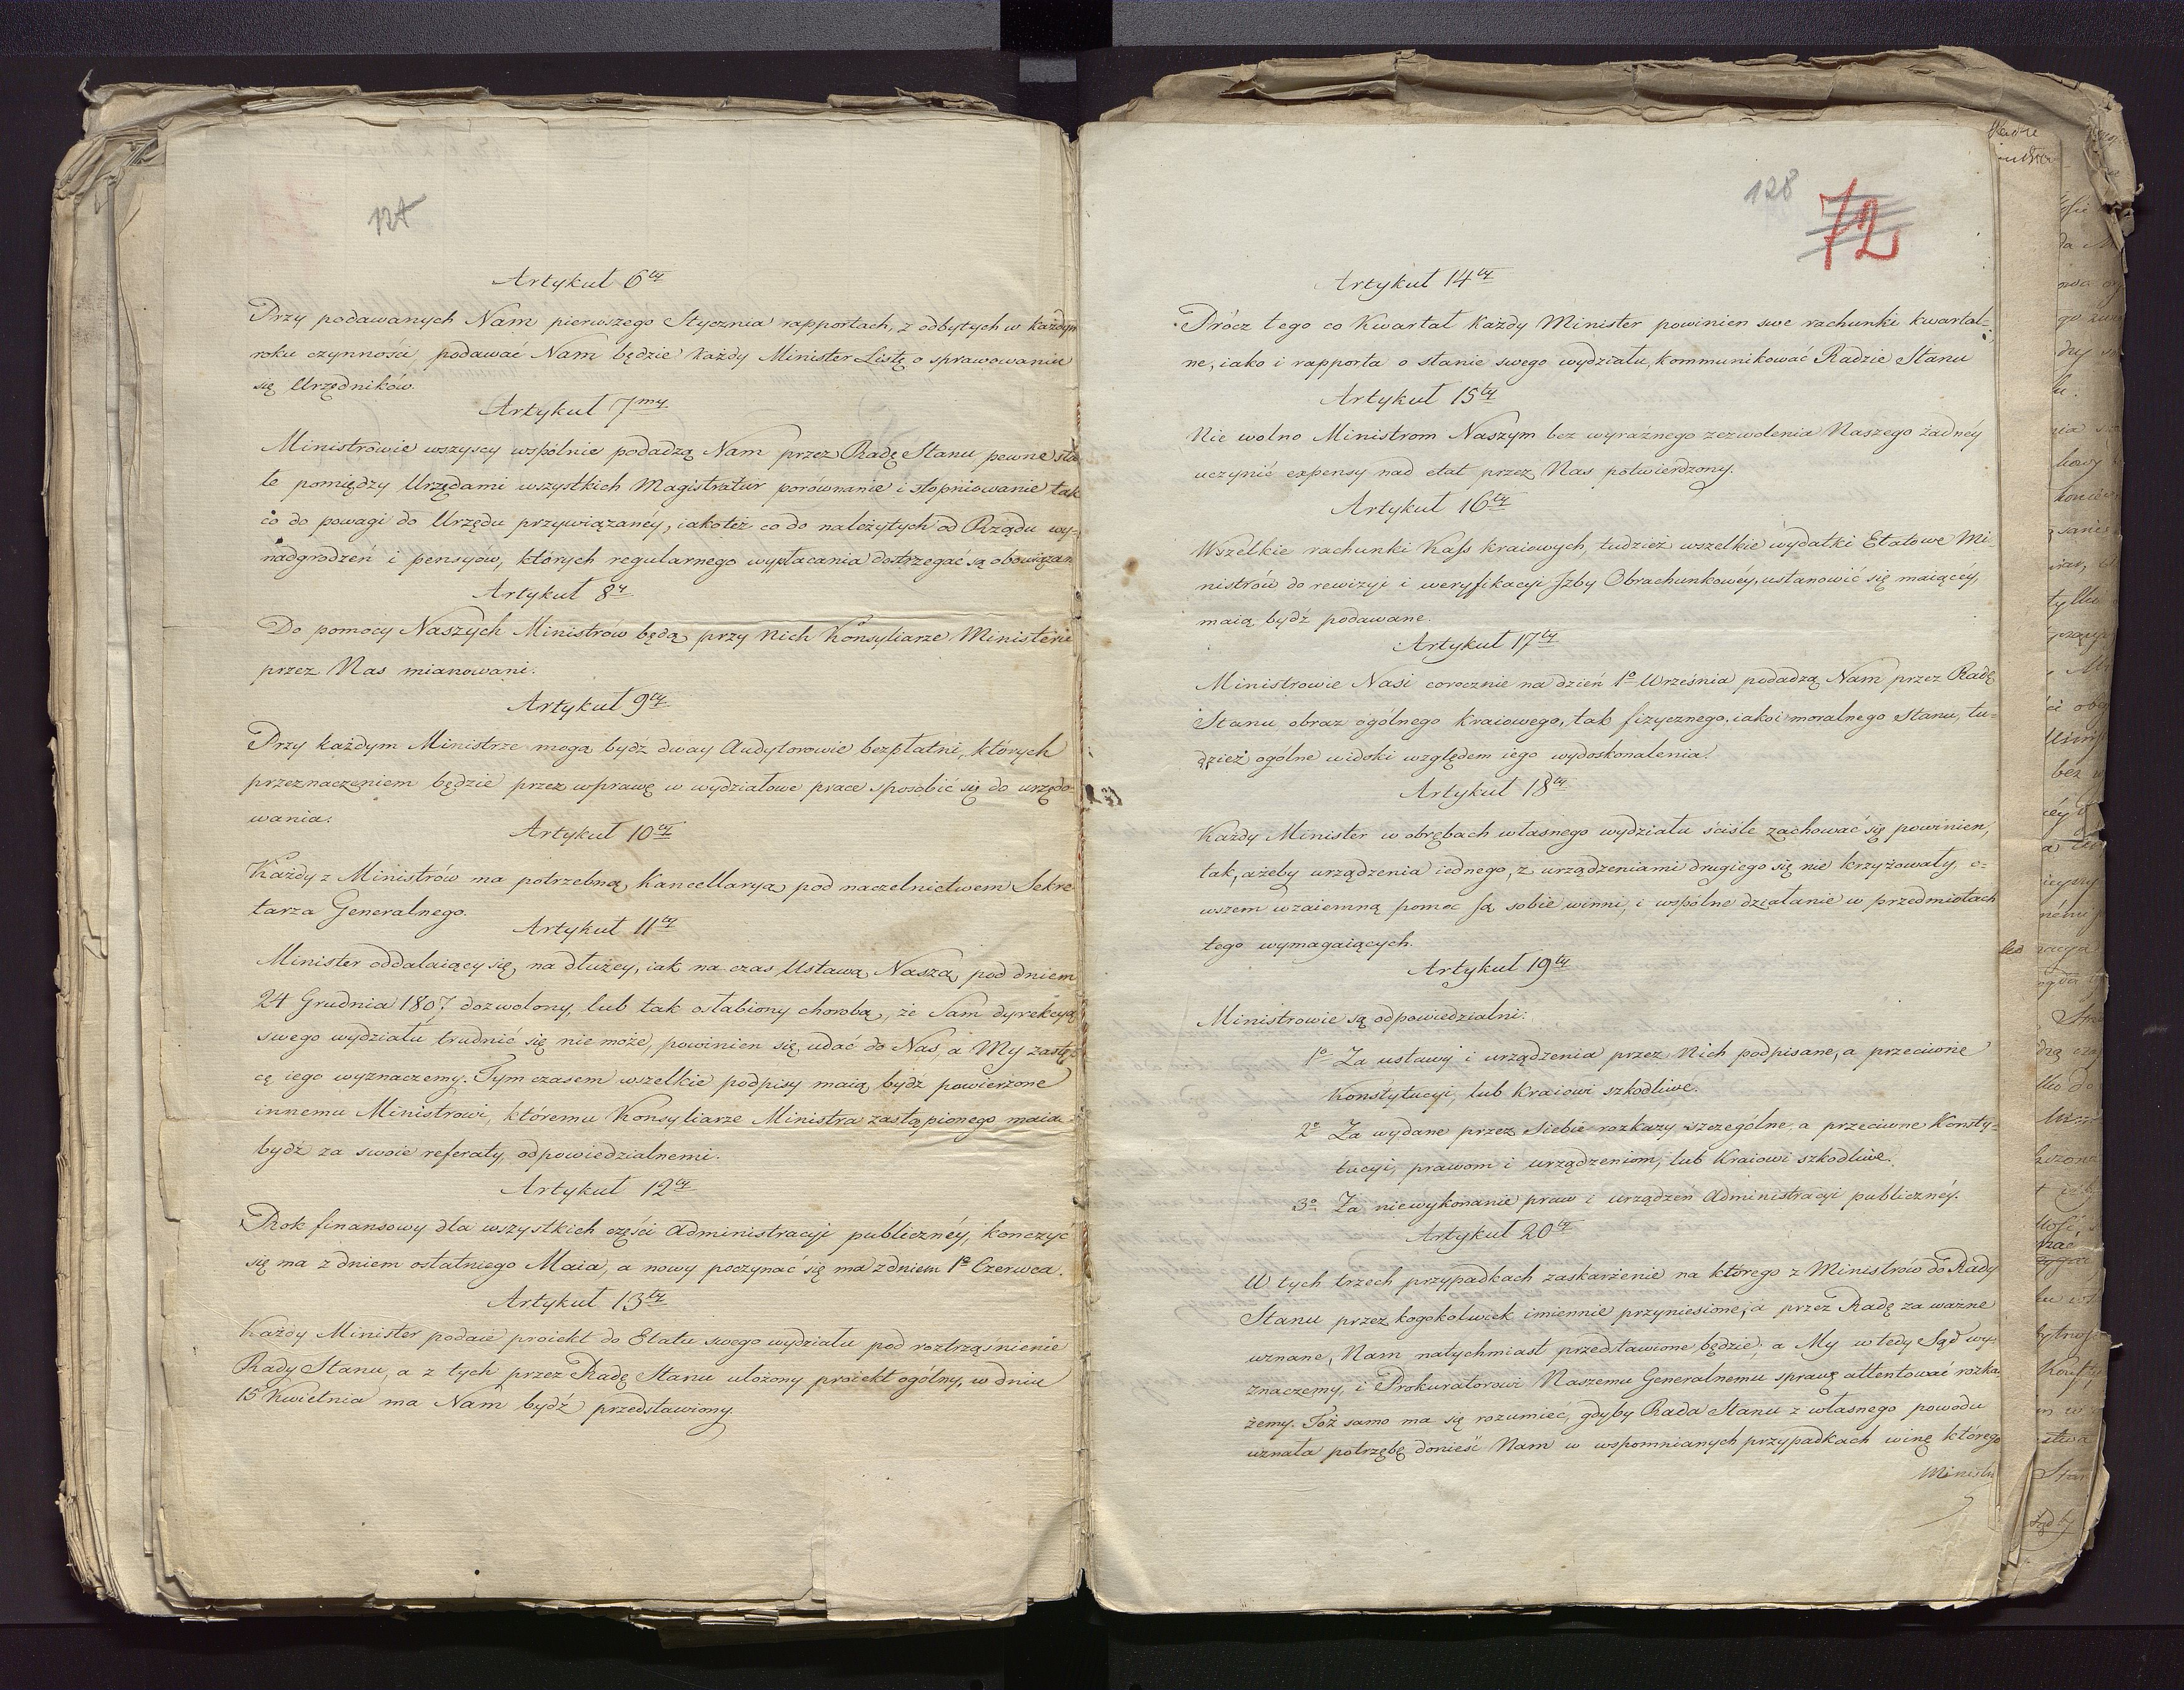 127
Artykuł 6ty
Przy podawanych Nam pierwszego Stycznia rapportach, z odbytych w każdym
roku czynności, podawać Nam będzie każdy Minister Listę o sprawowaniu
się Urzędników.
Artykuł 7my
Ministrowie wszyscy wspólnie podadzą Nam przez Radę Stanu pewne sta
łe pomiędzy Urzędami wszystkich Magistratur porównanie i stopniowanie tak
co do powagi do Urzędu przywiązanéy, iako też co do należytych od Rządu wy-
nadgrodzeń i pensyów, których regularnego wypłacania dostrzegać są obowiązan
Artykuł 8y
Do pomocy Naszych Ministrów będą przy Nich Konsyliarze Ministerie
przez Nas mianowani.
Artykuł 9ty
Przy każdym Ministrze mogą bydź dway Audytorowie bezpłatni, których
przeznaczeniem będzie przez wprawę w wydziałowe prace sposobić się do urzędo-
wania.
Artykuł 10ty
Każdy z Ministrów ma potrzebną Kancellaryą pod naczelnictwem Sekre
tarza Generalnego.
Artykuł 11ty
Minister oddalaiący się, na dłużey, iak na czas Ustawą Naszą pod dniem
24 Grudnia 1807 dozwolony, lub tak osłabiony chorobą, że Sam dyrekcyą
swego wydziału trudnić się nie może, powinien się udać do Nas, a My zastę-
cę iego wyznaczemy. Tym czasem wszelkie podpisy maią bydź powierzone
innemu Ministrowi, któremu Konsyliarze Ministra zastąpionego maią
bydź za swoie referaty, odpowiedzialnemi.
Artykuł 12ty
Rok finansowy dla wszystkich części Administracyi publicznéy, konczyć
się ma z dniem ostatniego Maia, a nowy poczynać się ma z dniem 1o Czerwca.
Artykuł 13ty
Każdy Minister podaie proiekt do Etatu swego wydziału pod roztrząśnienie
Rady Stanu, a z tych przez Radę Stanu ułożony proiekt ogólny, w dniu
15 Kwietnia ma Nam bydź przedstawiony.
128
72
Artykuł 14ty
Prócz tego co Kwartał każdy Minister powinien swe rachunki kwartal-
ne, iako i rapporta o stanie swego wydziału, kommunikować Radzie Stanu
Artykuł 15ty
Nie wolno Ministrom Naszym bez wyraźnego zezwolenia Naszego żadnéy
uczynić expensy nad etat przez Nas potwierdzony.
Artykuł 16ty
Wszelkie rachunki Kass kraiowych, tudzież wszelkie wydatki Etatowe Mi-
nistrów do rewizyi i weryfikacyi Izby Obrachunkowéy, ustanowić się maiącéy,
maią bydź podawane.
Artykuł 17ty
Ministrowie Nasi corocznie na dzień 1o Września podadzą Nam przez Radę
Stanu obraz ogólnego kraiowego, tak fizycznego, iako i moralnego Stanu, tu-
dzież ogólne widoki względem iego wydoskonalenia.
Artykuł 18ty
Każdy Minister w obrębach własnego wydziału ściśle zachować się powinien,
tak, ażeby urządzenia iednego, z urządzeniami drugiego się nie krzyżowały, o-
wszem wzaiemną pomoc są sobie winni, i wspólne działanie w przedmiotach
tego wymagaiących.
Artykuł 19ty
Ministrowie są odpowiedzialni:
1o Za ustawy i urządzenia przez Nich podpisane, a przeciwne
Konstytucyi, lub kraiowi szkodliwe.
2o Za wydane przez Siebie rozkazy szczególne, a przeciwne Konsty-
tucyi, prawom i urządzeniom, lub Kraiowi szkodliwe.
3o Za niewykonanie praw i urządzeń Administracyi publicznéy.
Artykuł 20ty
W tych trzech przypadkach zaskarżenie na którego z Ministrów do Rady
Stanu przez kogokolwiek imiennie przyniesione, a przez Radę za ważne
uznane, Nam natychmiast przedstawione będzie; a My wtedy Sąd wy-
znaczemy, i Prokuratorowi Naszemu Generalnemu sprawę attentować rozka
żemy. Toż samo ma się rozumieć, gdyby Rada Stanu z własnego powodu
uznała potrzebę donieść Nam w wspomnianych przypadkach winę którego
Ministr